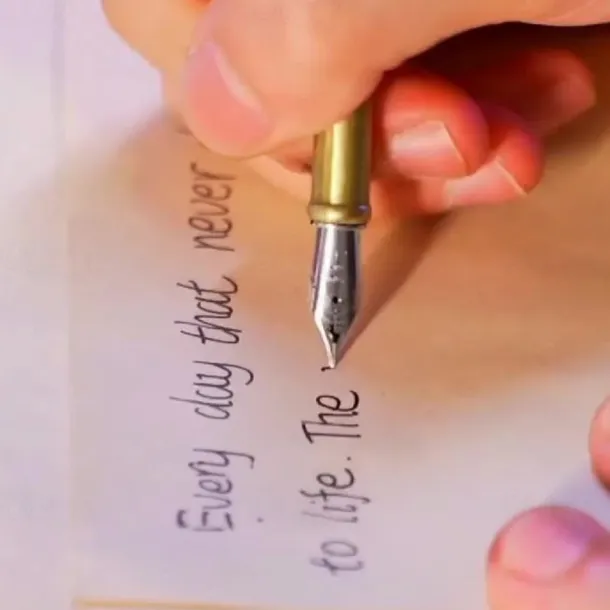 Every day that never
to life. The